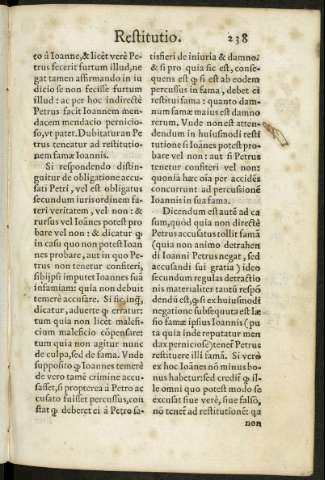 Restitutio. 238
to à Ioanne,& licèt verè Pe-
trus fecerit furtum illud,ne
gat tamen affirmando in iu
dicio se non fecisse furtum
illud: ac per hoc indirectè
Petrus facit Ioannem men-
dacem mendacio pernicio-
so,vt patet. Dubitatur an Pe
trus teneatur ad restitutio-
nem famæ Ioannis.
Si respondendo distin-
guitur de obligatione accu-
sati Petri, vel est obligatus
secundum iuris ordinem fa-
teri veritatem, vel non: &
rursus vel Ioānes potest pro
bare vel non: & dicatur q̃
in casu quo non potest Ioan
nes probare, aut in quo Pe-
trus non tenetur confiteri,
sibi ipsi imputet Ioannes suā
infamiam: quia non debuit
temerè accusare. Si sic, inq̃,
dicatur, aduerte q̃ erratur:
tum quia non licet male-
ficium maleficio cōpensare
tum quia non agitur nunc
de culpa, sed de fama. Vnde
supposito q̃ Ioannes temerè
de vero tamē crimine accu-
sasset, si propterea à Petro ac
cusato fuisset percussus, con
stat q̃ deberet ei à Petro sa-
tisfieri de iniuria & damno:
& si pro quia sic est, conse-
quens est q̃ si est ab eodem
percussus in fama, debet ei
restitui fama: quanto dam-
num famæ maius est damno
rerum. Vnde non est atten-
dendum in huiusmodi resti
tutione si Ioānes potest pro
bare vel non: aut si Petrus
tenetur confiteri vel non:
quoniā hæc oīa per accidēs
concurrunt ad percussionē
Ioannis in sua fama.
Dicendum est autē ad ca
sum, quòd quia non directè
Petrus accusatus tollit famā
(quia non animo detrahen
di Ioanni Petrus negat, sed
accusandi sui gratia) ideo
secundum regulas detractio
nis materialiter tantū respō
dendū est, q̃ si ex huiusmodi
negatione subsequuta est læ
sio famæ ipsius Ioannis (pu
ta quia inde reputatur men
dax perniciose) tenet̃ Petrus
restituere illi famā. Si verò
ex hoc Ioānes nō minus bo-
nus habetur: sed credit̃ q̃ il-
le omni quo potest modo se
excusat siue verè, siue falso,
nō tenet̃ ad restitutionē: qa
non